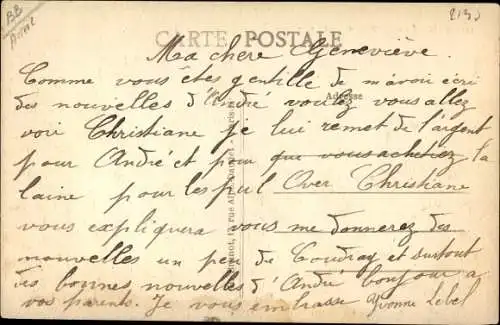 BB
2135
CARTE POSTALE
Ma chere Geneviève.
Comme vous êtes gentille de m'avoir écri
Adresse
des nouvelles d'André vous allez
voir Christiane je lui remet de l'argent
pour André et pour que vous achetiez la
laine pour les pul Over Christiane
vous expliquera vous me donnerez des
nouvelles un peu de Coudray et surtout
des bonnes nouvelles d'André bonjour a
vos parents. Je vous embrasse Yvonne Lebel